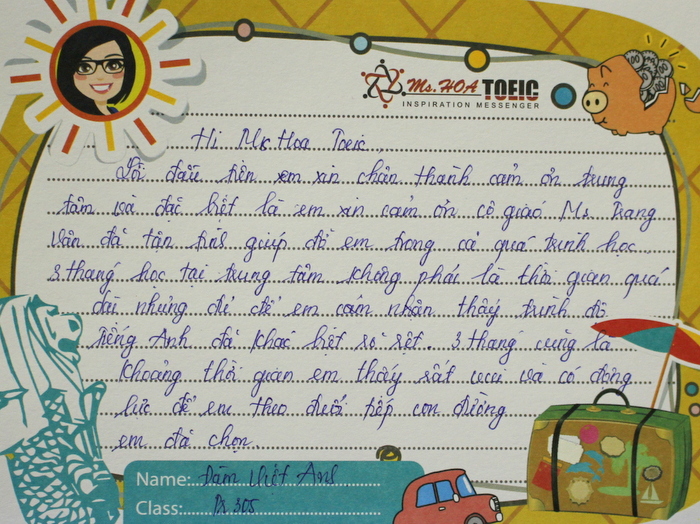 Ms. HOA TOEIC
INSPIRATION MESSENGER
Hi Ms Hoa Toeic,
Lời đầu tiên em xin chân thành cảm ơn trung
tâm và đặc biệt là em xin cảm ơn cô giáo Ms Trang
Vân đã tận tình giúp đỡ em trong cả quá trình học.
3 tháng học tại trung tâm không phải là thời gian quá
dài nhưng đủ để em cảm nhận thấy trình độ
Tiếng Anh đã khác biệt rõ rệt. 3 tháng cũng là
khoảng thời gian em thấy rất vui và có động
lực để em theo đuổi tiếp con đường
em đã chọn.
Name: Đàm Việt Anh
Class: 305